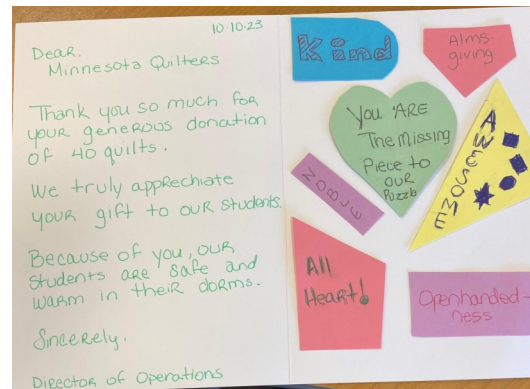 10-10-23
Dear.
Minnesota Quilters
Thank you so much for
your generous donation
of 40 quilts.
We truly apprechiate
your gift to our students.
Because of you, our
students are safe and
warm in their dorms.
Sincerely.
Director of Operations
Kind
Alms-
giving
You ARE
The Missing
Piece to
OUR
Puzzle
AWESOME
NOBLE
All
Heart!
Openhanded-
ness